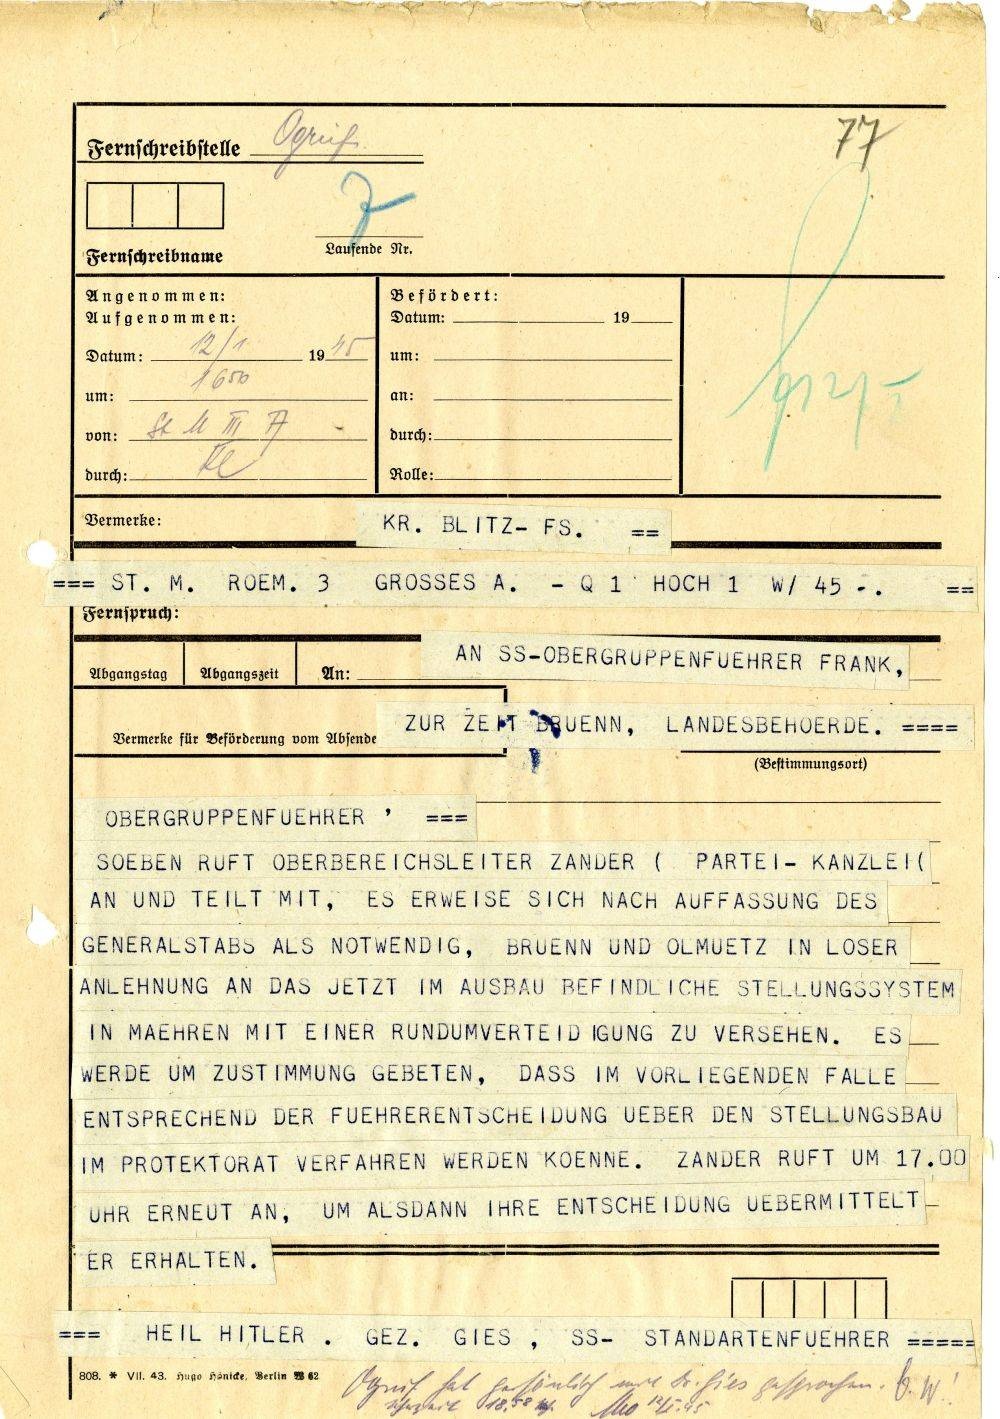 77
Fernschreibstelle Ogruf.
7
Fernschreibname
Laufende Nr.
Angenommen:
Aufgenommen:
Datum: 12/1 1945
um: 1650
von: St M III A
durch:
Befördert:
Datum: 19
um:
an:
durch:
Rolle:
Vermerke:
KR. BLITZ- FS. ==
=== ST. M. ROEM. 3 GROSSES A. - Q 1 HOCH 1 W/ 45 -. ==
Fernspruch:
Abgangstag Abgangszeit An: AN SS-OBERGRUPPENFUEHRER FRANK,
Vermerke für Beförderung vom Absende ZUR ZEIT BRUENN, LANDESBEHOERDE. ====
(Bestimmungsort)
OBERGRUPPENFUEHRER ' ===
SOEBEN RUFT OBERBEREICHSLEITER ZANDER ( PARTEI- KANZLEI(
AN UND TEILT MIT, ES ERWEISE SICH NACH AUFFASSUNG DES
GENERALSTABS ALS NOTWENDIG, BRUENN UND OLMUETZ IN LOSER
ANLEHNUNG AN DAS JETZT IM AUSBAU BEFINDLICHE STELLUNGSSYSTEM
IN MAEHREN MIT EINER RUNDUMVERTEIDIGUNG ZU VERSEHEN. ES
WERDE UM ZUSTIMMUNG GEBETEN, DASS IM VORLIEGENDEN FALLE
ENTSPRECHEND DER FUEHRERENTSCHEIDUNG UEBER DEN STELLUNGSBAU
IM PROTEKTORAT VERFAHREN WERDEN KOENNE. ZANDER RUFT UM 17.00
UHR ERNEUT AN, UM ALSDANN IHRE ENTSCHEIDUNG UEBERMITTELT
ER ERHALTEN.
=== HEIL HITLER . GEZ. GIES , SS- STANDARTENFUEHRER =====
808. * VII. 43. Hugo Hänicke, Berlin W 62
Ogruf hat persönlich mit Dr. Gies gesprochen. b. W!
18.58